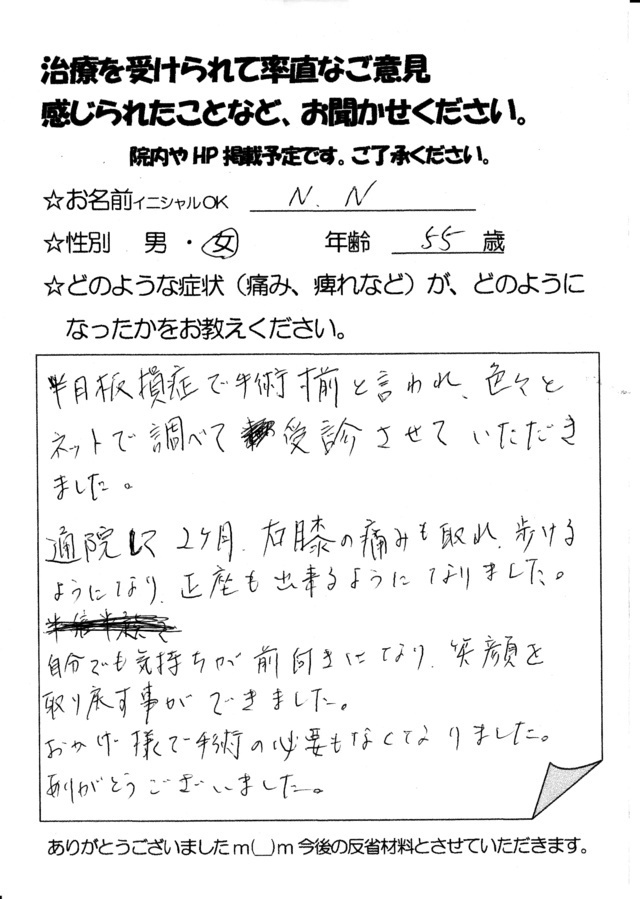 治療を受けられて率直なご意見
感じられたことなど、お聞かせください。
院内やHP掲載予定です。ご了承ください。
☆お名前イニシャルOK N. N
☆性別 男・女 年齢 55 歳
☆どのような症状（痛み、痺れなど）が、どのように
なったかをお教えください。
半月板損症で手術寸前と言われ、色々と
ネットで調べて受診させていただき
ました。
通院して2ヶ月、右膝の痛みも取れ、歩ける
ようになり、正座も出来るようになりました。
自分でも気持ちが前向きになり、笑顔を
取り戻す事ができました。
おかげ様で手術の必要もなくなりました。
ありがとうございました。
ありがとうございましたm(__)m今後の反省材料とさせていただきます。